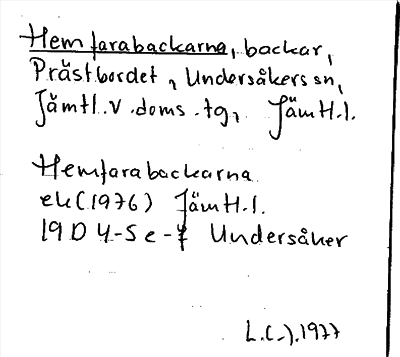 Hemfarabackarna, backar,
Prästbordet, Undersåkers sn,
Jämtl.v.doms.tg, Jämtl.l.
Hemfarabackarna
ek(1976) Jämtl.l.
19D 4-5 e-f Undersåker
L.(-).1977